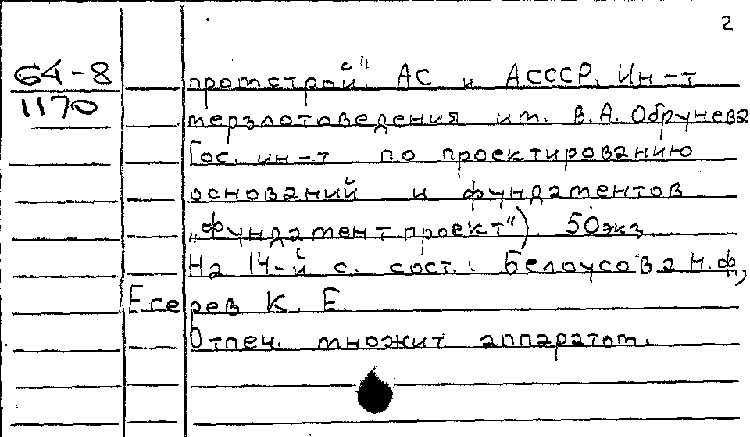 2
64-8 промстрой" АС и АСССР. Ин-т
1170
мерзлотоведения им. В.А. Обручева
Гос. ин-т по проектированию
оснований и фундаментов
„Фундаментпроект") 50экз
На 14-й с. сост.: Белоусова Н.Ф,
Егерев К. Е
Отпеч. множит аппаратом.